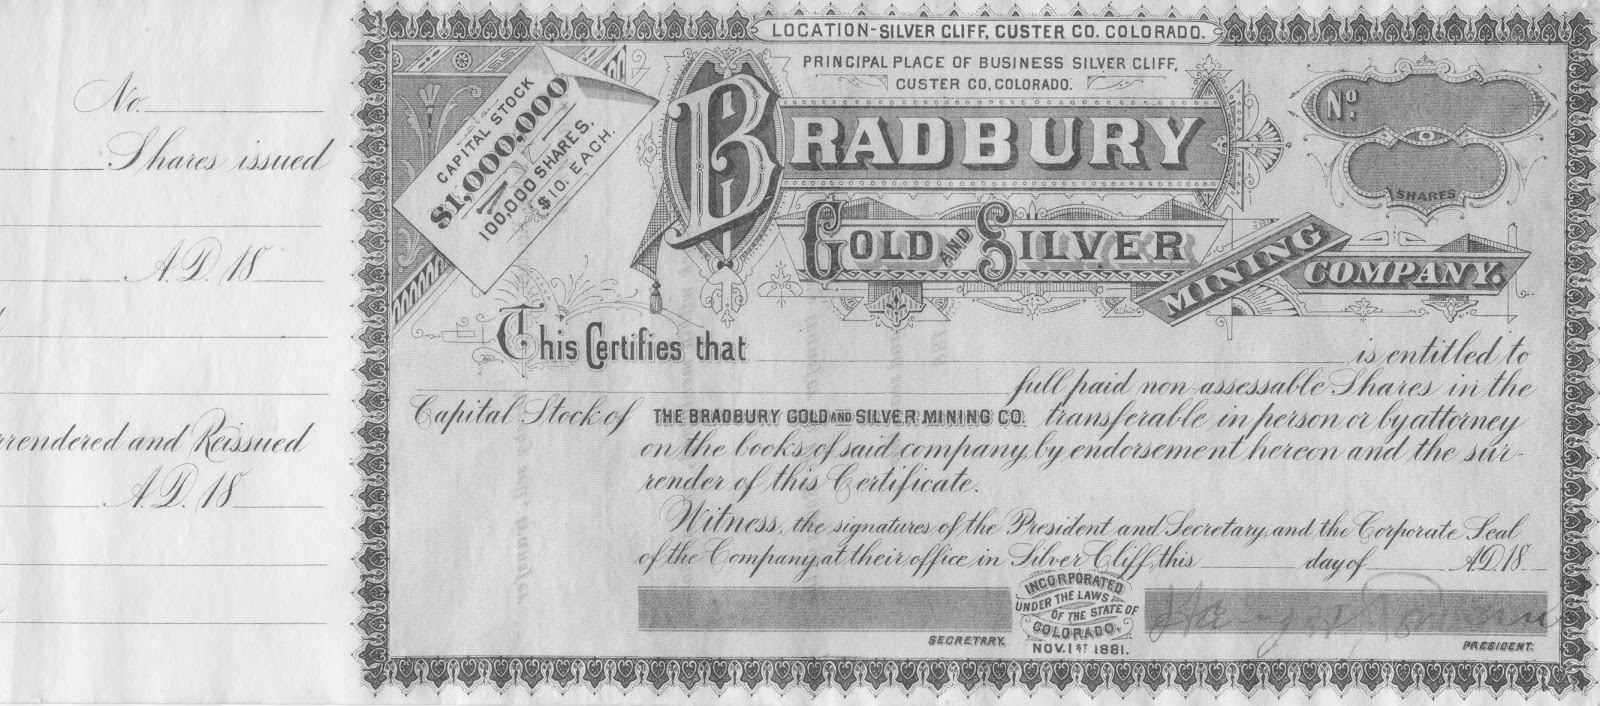 No.
Shares issued
A.D. 18
rrendered and Reissued
A.D. 18
LOCATION-SILVER CLIFF, CUSTER CO. COLORADO.
PRINCIPAL PLACE OF BUSINESS SILVER CLIFF,
CUSTER CO, COLORADO.
CAPITAL STOCK
$1,000,000
100,000 SHARES,
$10. EACH.
BRADBURY
GOLD AND SILVER
MINING COMPANY.
No.
SHARES
This Certifies that is entitled to
full paid non-assessable Shares in the
Capital Stock of THE BRADBURY GOLD AND SILVER MINING CO. transferable in person or by attorney
on the books of said company, by endorsement hereon and the sur-
render of this Certificate.
Witness, the signatures of the President and Secretary, and the Corporate Seal
of the Company, at their office in Silver Cliff, this day of A.D. 18
INCORPORATED
UNDER THE LAWS
OF THE STATE OF
COLORADO.
NOV. 1ST 1881.
SECRETARY.
PRESIDENT.